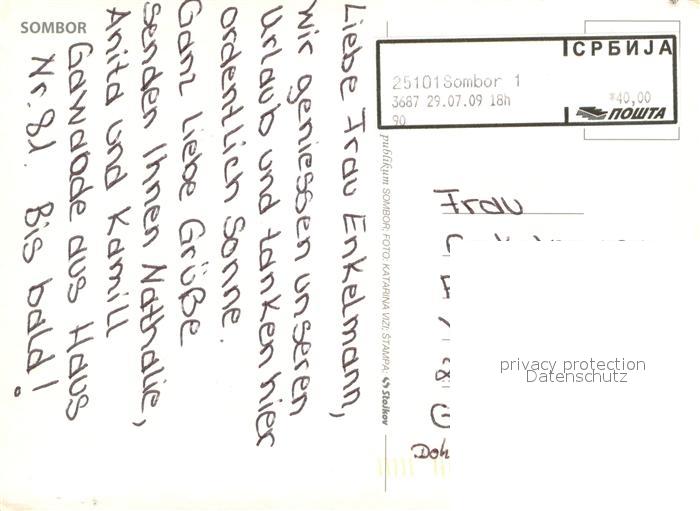 SOMBOR
Liebe Frau Enkelmann,
wir geniessen unseren
Urlaub und tanken hier
ordentlich Sonne.
Ganz liebe Grüße
senden Ihnen Nathalie,
Anita und Kamill
Gawabde aus Haus
Nr. 81. Bis bald!
publikum SOMBOR; FOTO: KATARINA VIZI; ŠTAMPA: Stojkov
СРБИЈА
25101Sombor 1
3687 29.07.09 18h
90
*40,00
ПОШТА
Frau
privacy protection
Datenschutz